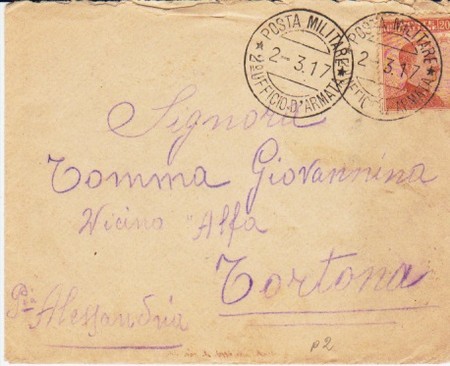 POSTA MILITARE
2-3.17
★ 2º UFFICIO D'ARMATA ★
POSTA MILITARE
2-3.17
Signora
Tomma Giovannina
Vicino Alfa
Tortona
Alessandria
p2